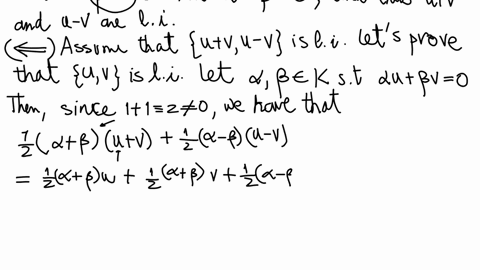 and u-v are l.i.
(⟸) Assume that {u+v, u-v} is l.i. let's prove
that {u,v} is l.i. let α, β ∈ K s.t αu+βv=0
Then, since 1+1=2≠0, we have that
1/2 (α+β)(u+v) + 1/2 (α-β)(u-v)
= 1/2 (α+β)u + 1/2 (α+β) v + 1/2 (α-β